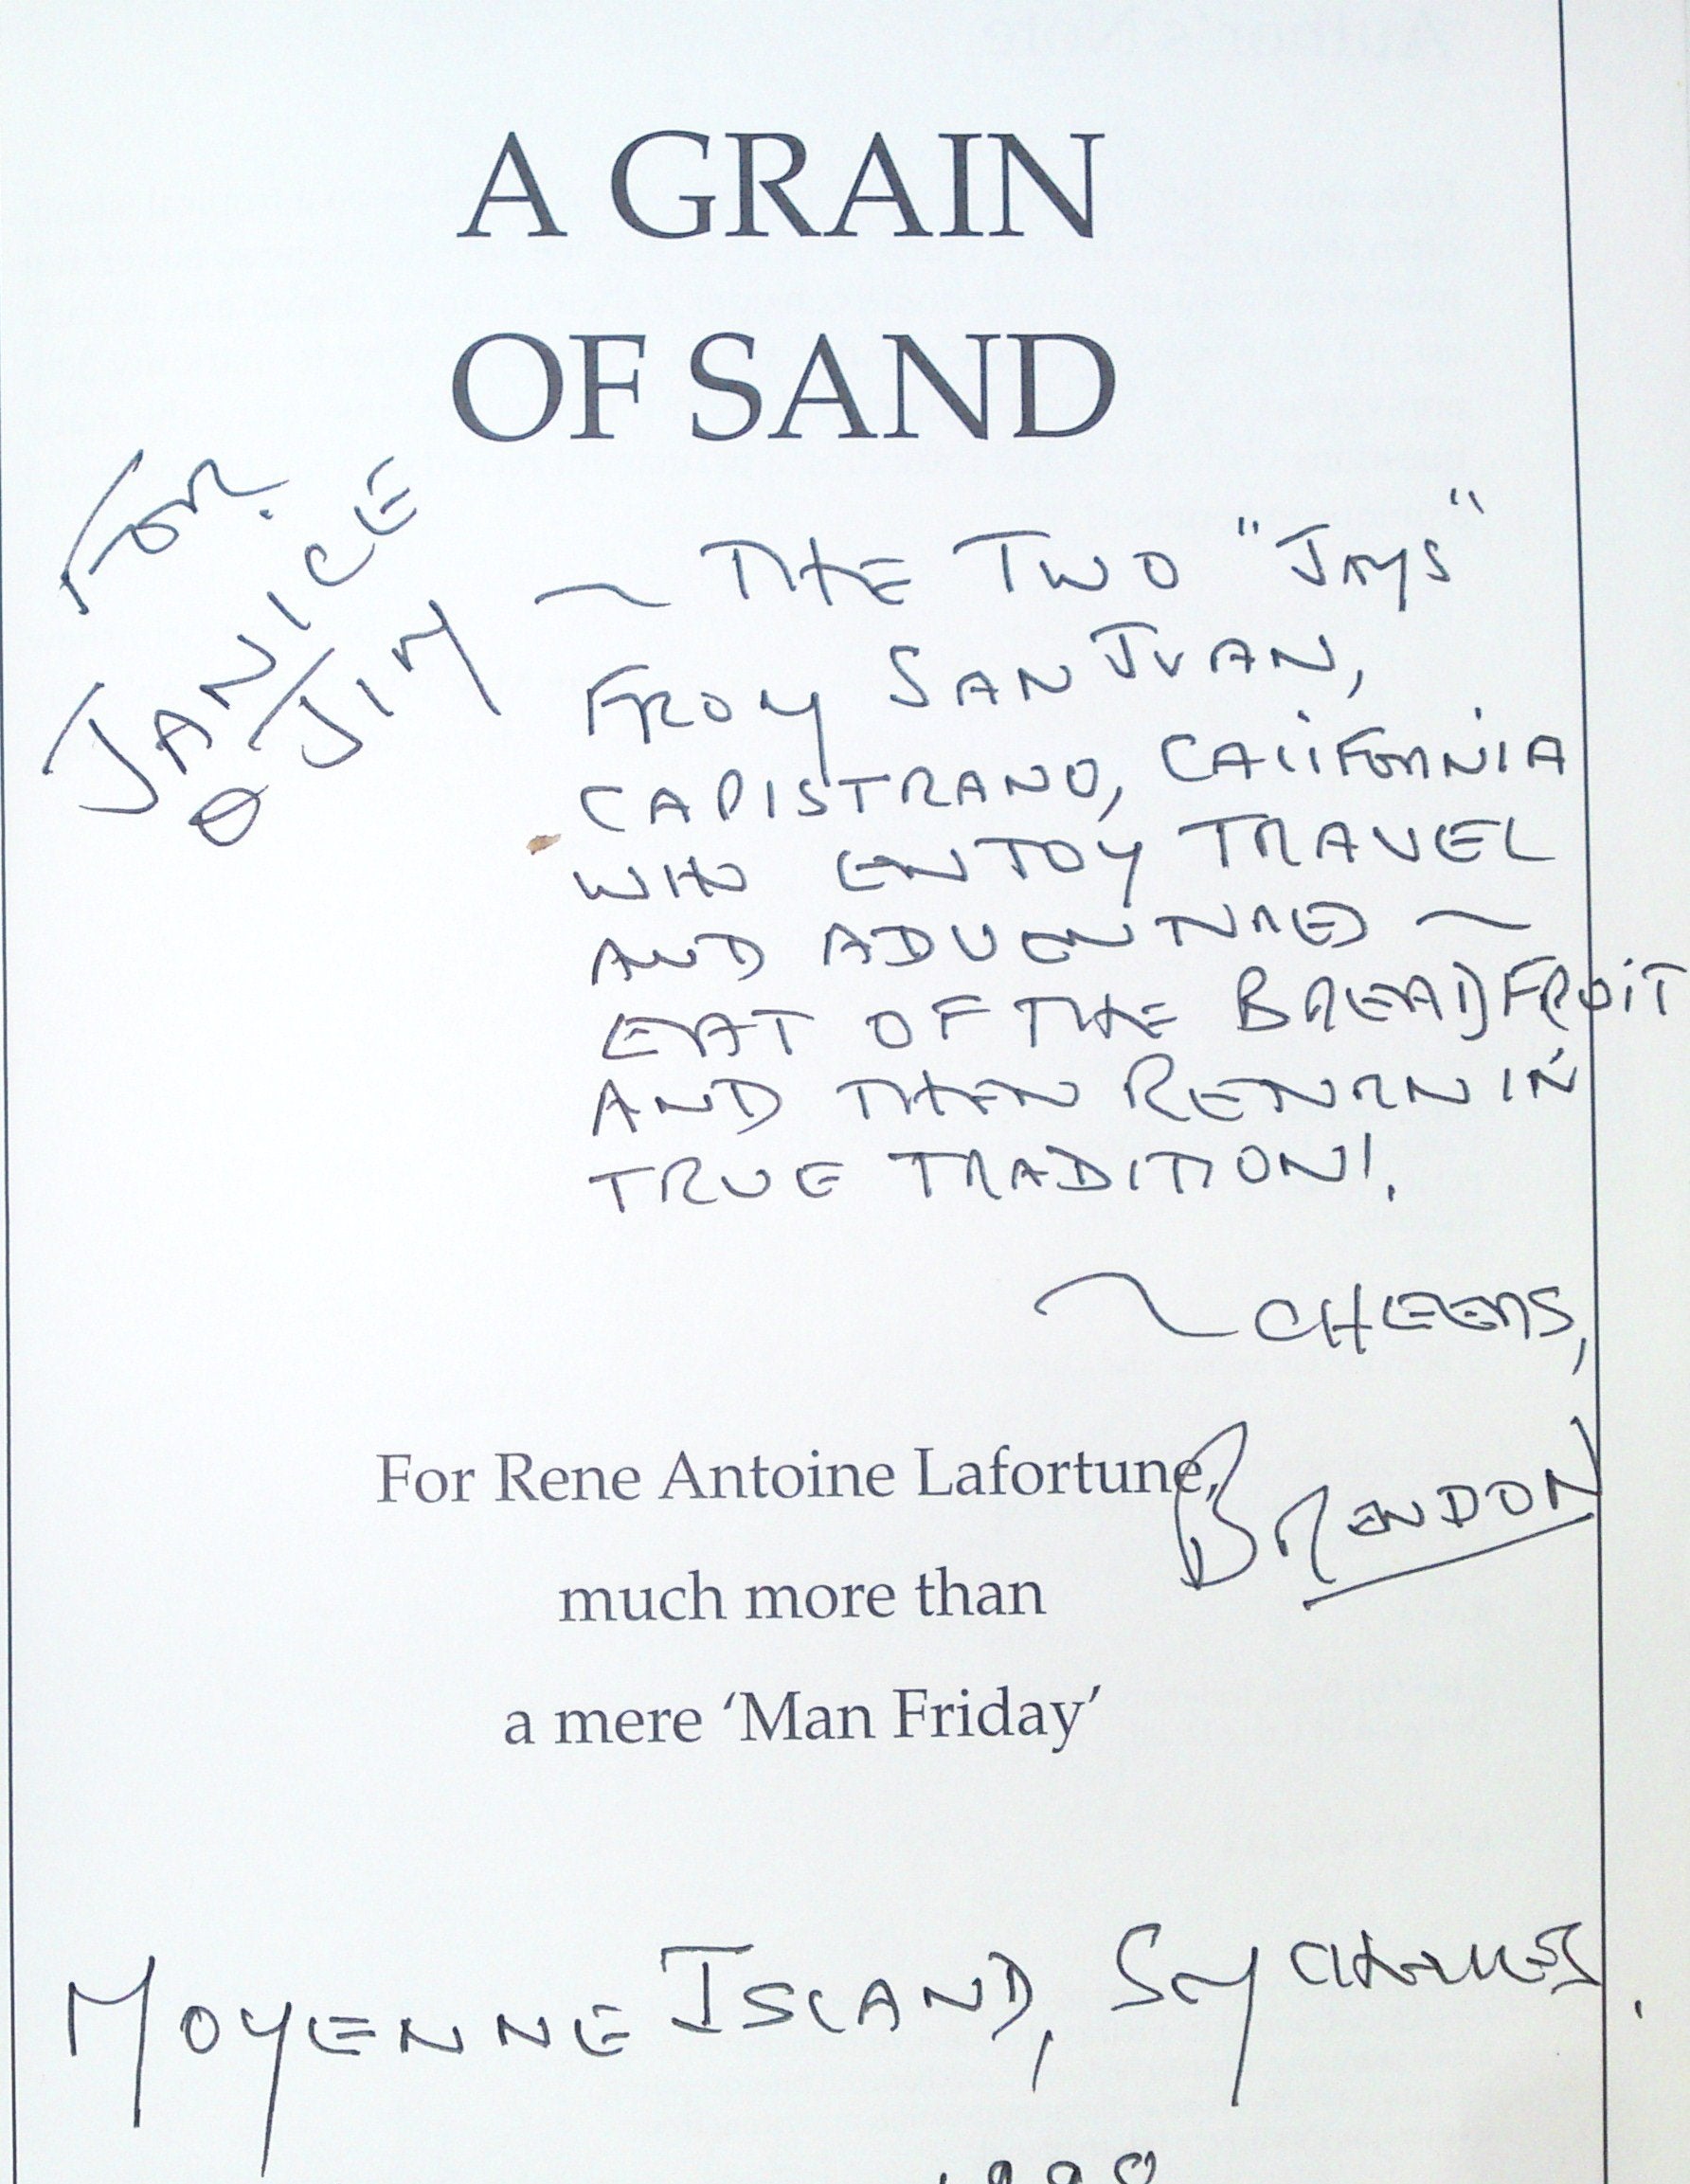 A GRAIN
OF SAND
FOR
JANICE
& JIM
~ THE TWO "JAYS"
FROM SAN JUAN,
CAPISTRANO, CALIFORNIA
WHO ENJOY TRAVEL
AND ADVENTURE ~
EAT OF THE BREADFRUIT
AND THEN RETURN IN
TRUE TRADITION!
~ CHEERS,
BRENDON
For Rene Antoine Lafortune,
much more than
a mere ‘Man Friday’
MOYENNE ISLAND, SEYCHELLES.